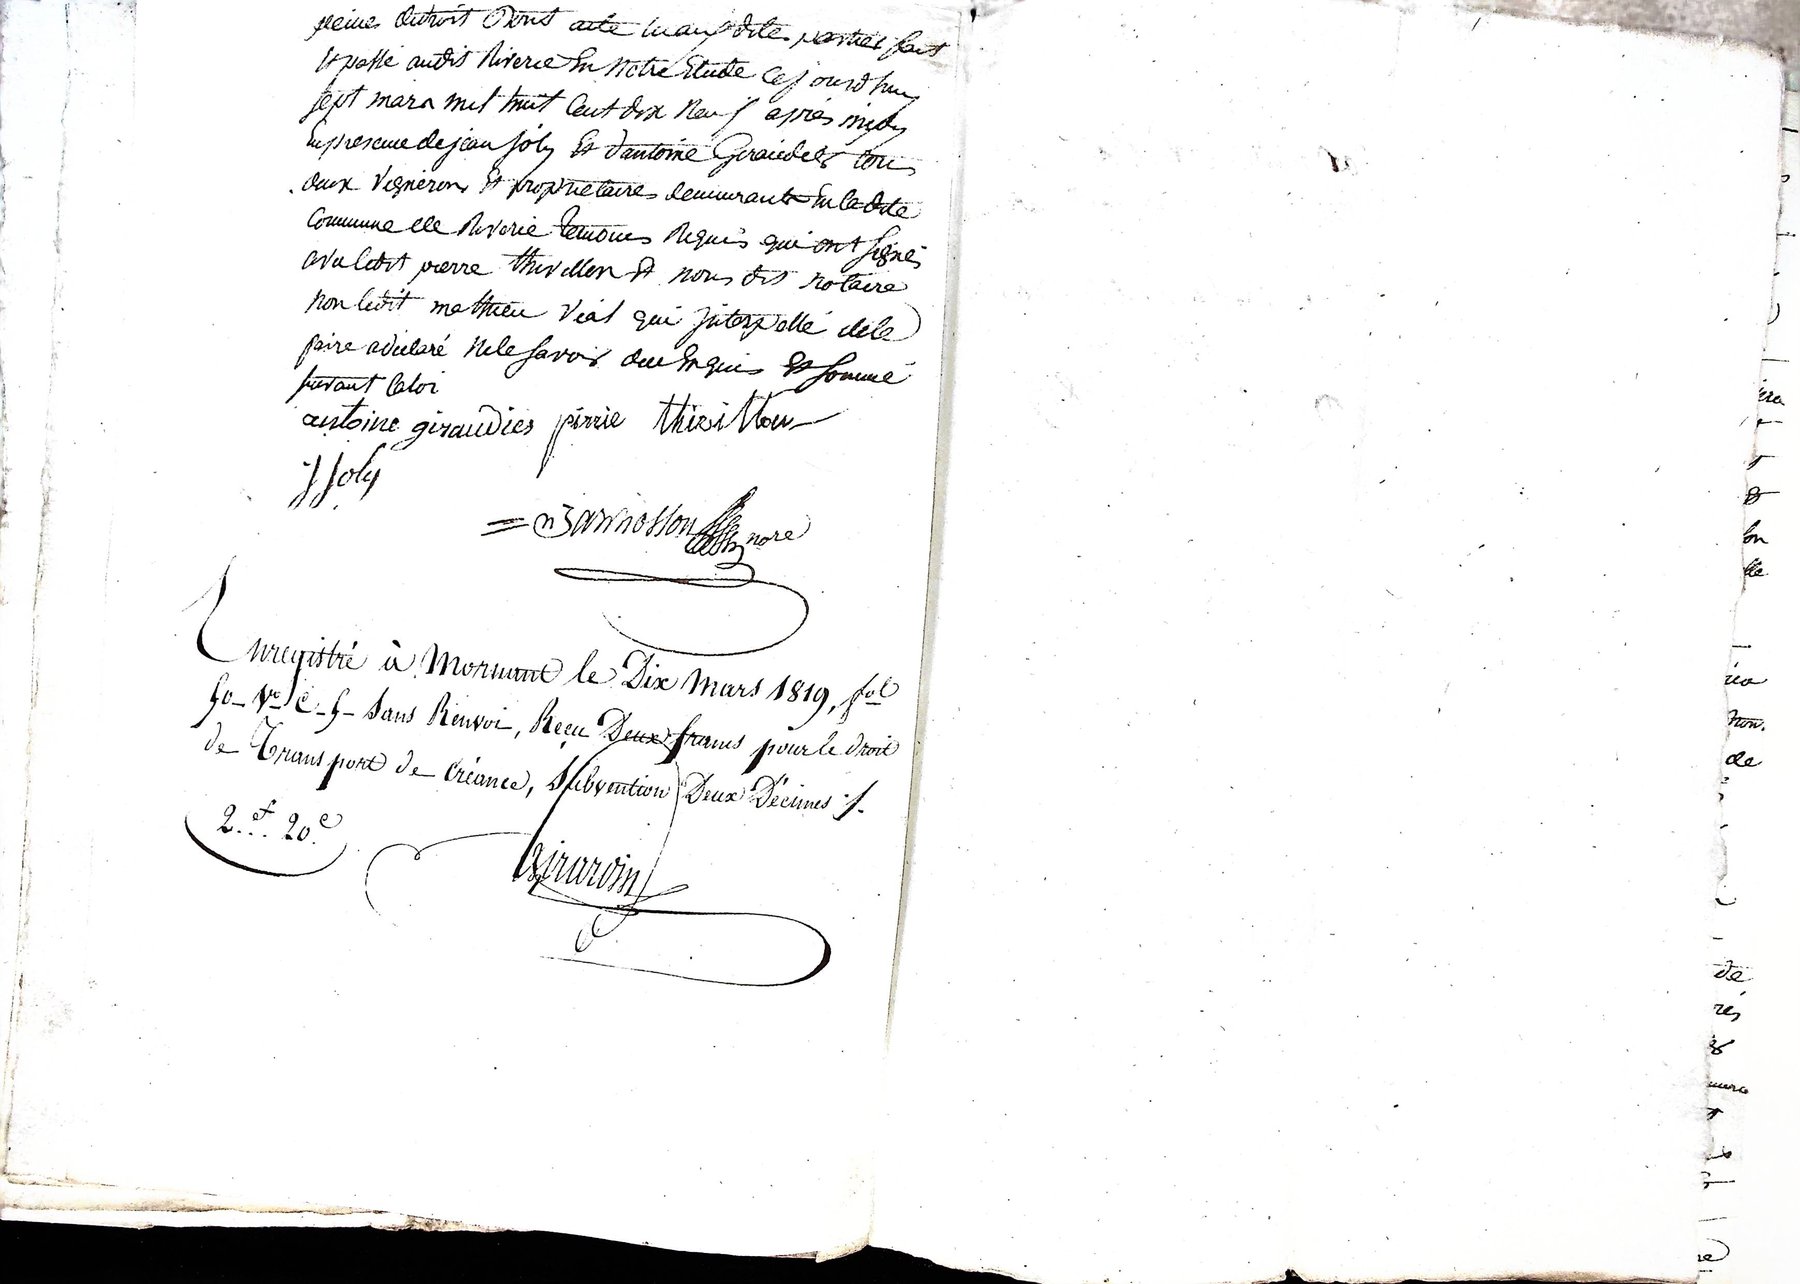 peines dudroit Dont acte auxdites parties fait
Et passé audit Riverie En notre Etude Cejourdhuy
sept mars mil huit Cent dix Neuf après midy
En presence de jean joly Et d'antoine Giraudier tous
deux Vignerons Et proprietaires demeurants En ladite
Commune de Riverie temoins Requis qui ont signés
avec ledit pierre thivillon Et nous dit notaire
non ledit mathieu Vial qui interpellé dele
faire a déclaré ne le savoir de ce Enquis Et sommé
suivant la loi
antoine giraudies pierre thivillon
j joly
nore
Enregistré à Mornant le Dix Mars 1819, fol
50 Vo C. 5 Sans Renvoi, Reçu Deux francs pour le droit
de Transport de Créance, Subvention Deux Décimes
2.f 20.c
Girardin
son
de
non.
de
de
rés